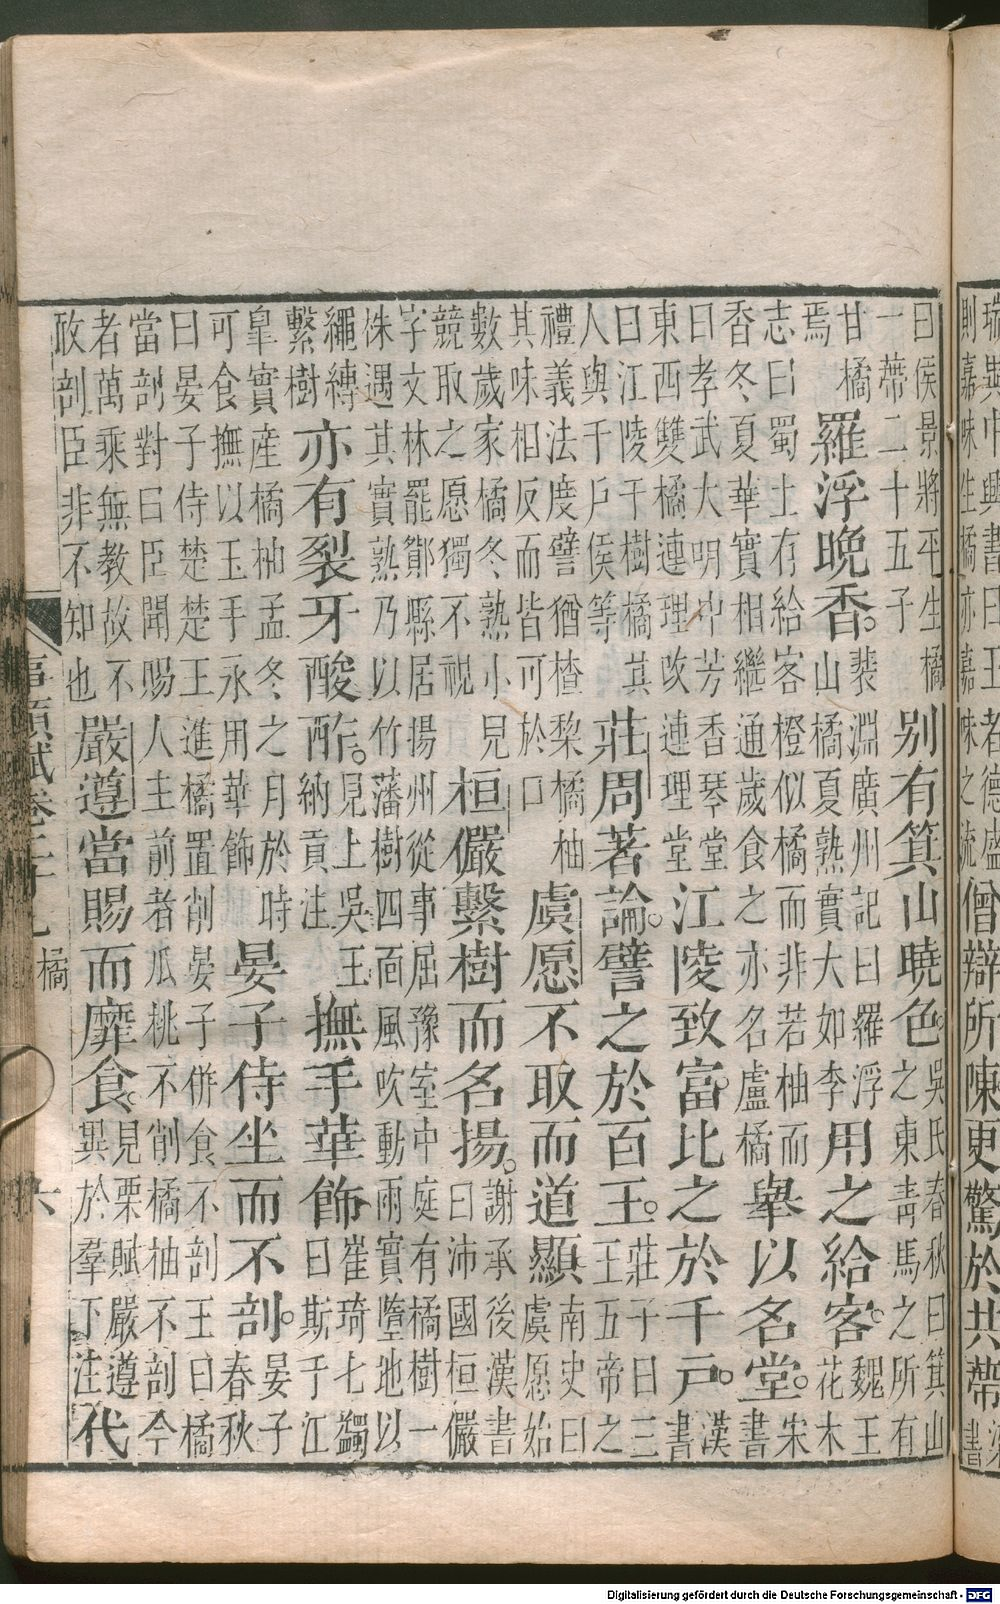 瑞與中興書曰王者德盛
則嘉味生橘亦嘉味之流
僧辯所陳更驚於共蔕
書
曰侯景將平生橘
一蔕二十五子
别有箕山曉色
吳氏春秋曰箕山
之東青馬之所有
甘橘
焉
羅浮晚香。
裴淵廣州記曰羅浮
山橘夏熟實大如李
用之給客。
魏王
花木
志曰蜀土有給客橙似橘而非若柚而
香冬夏華實相繼通歲食之亦名盧橘
舉以名堂。
宋
書
曰孝武大明中芳香琴堂
東西雙橘連理改連理堂
江陵致富。比之於千戸。
漢
書
曰江陵千樹橘其
人與千戶侯等
莊周著論。譬之於百王。
莊子曰三
王五帝之
禮義法度譬猶楂梨橘柚
其味相反而皆可於口
虞愿不取而道顯
南史曰
虞愿始
數歲家橘冬熟小兒
競取之愿獨不視
桓儼繫樹而名揚。
謝承後漢書
曰沛國桓儼
字文林罷鄮縣居揚州從事屈豫室中庭有橘樹一
侏遇其實熟乃以竹藩樹四面風吹動雨實墮地以
繩縛
繫樹
亦有裂牙酸酢。
見上吳王
納貢注
撫手華飾
崔琦七蠲
曰斯于江
臯實産橘柚孟冬之月於時
可食撫以玉手永用華飾
晏子侍坐而不剖。
晏子
春秋
曰晏子侍楚楚王進橘置削晏子併食不剖王曰橘
當剖對曰臣聞賜人主前者瓜桃不削橘柚不剖今
者萬乘無教故不
敢剖臣非不知也
嚴遵當賜而靡食。
見栗賦嚴遵
異於羣下注
代
事類賦卷二十七 橘 六
Digitalisierung gefördert durch die Deutsche Forschungsgemeinschaft - DFG